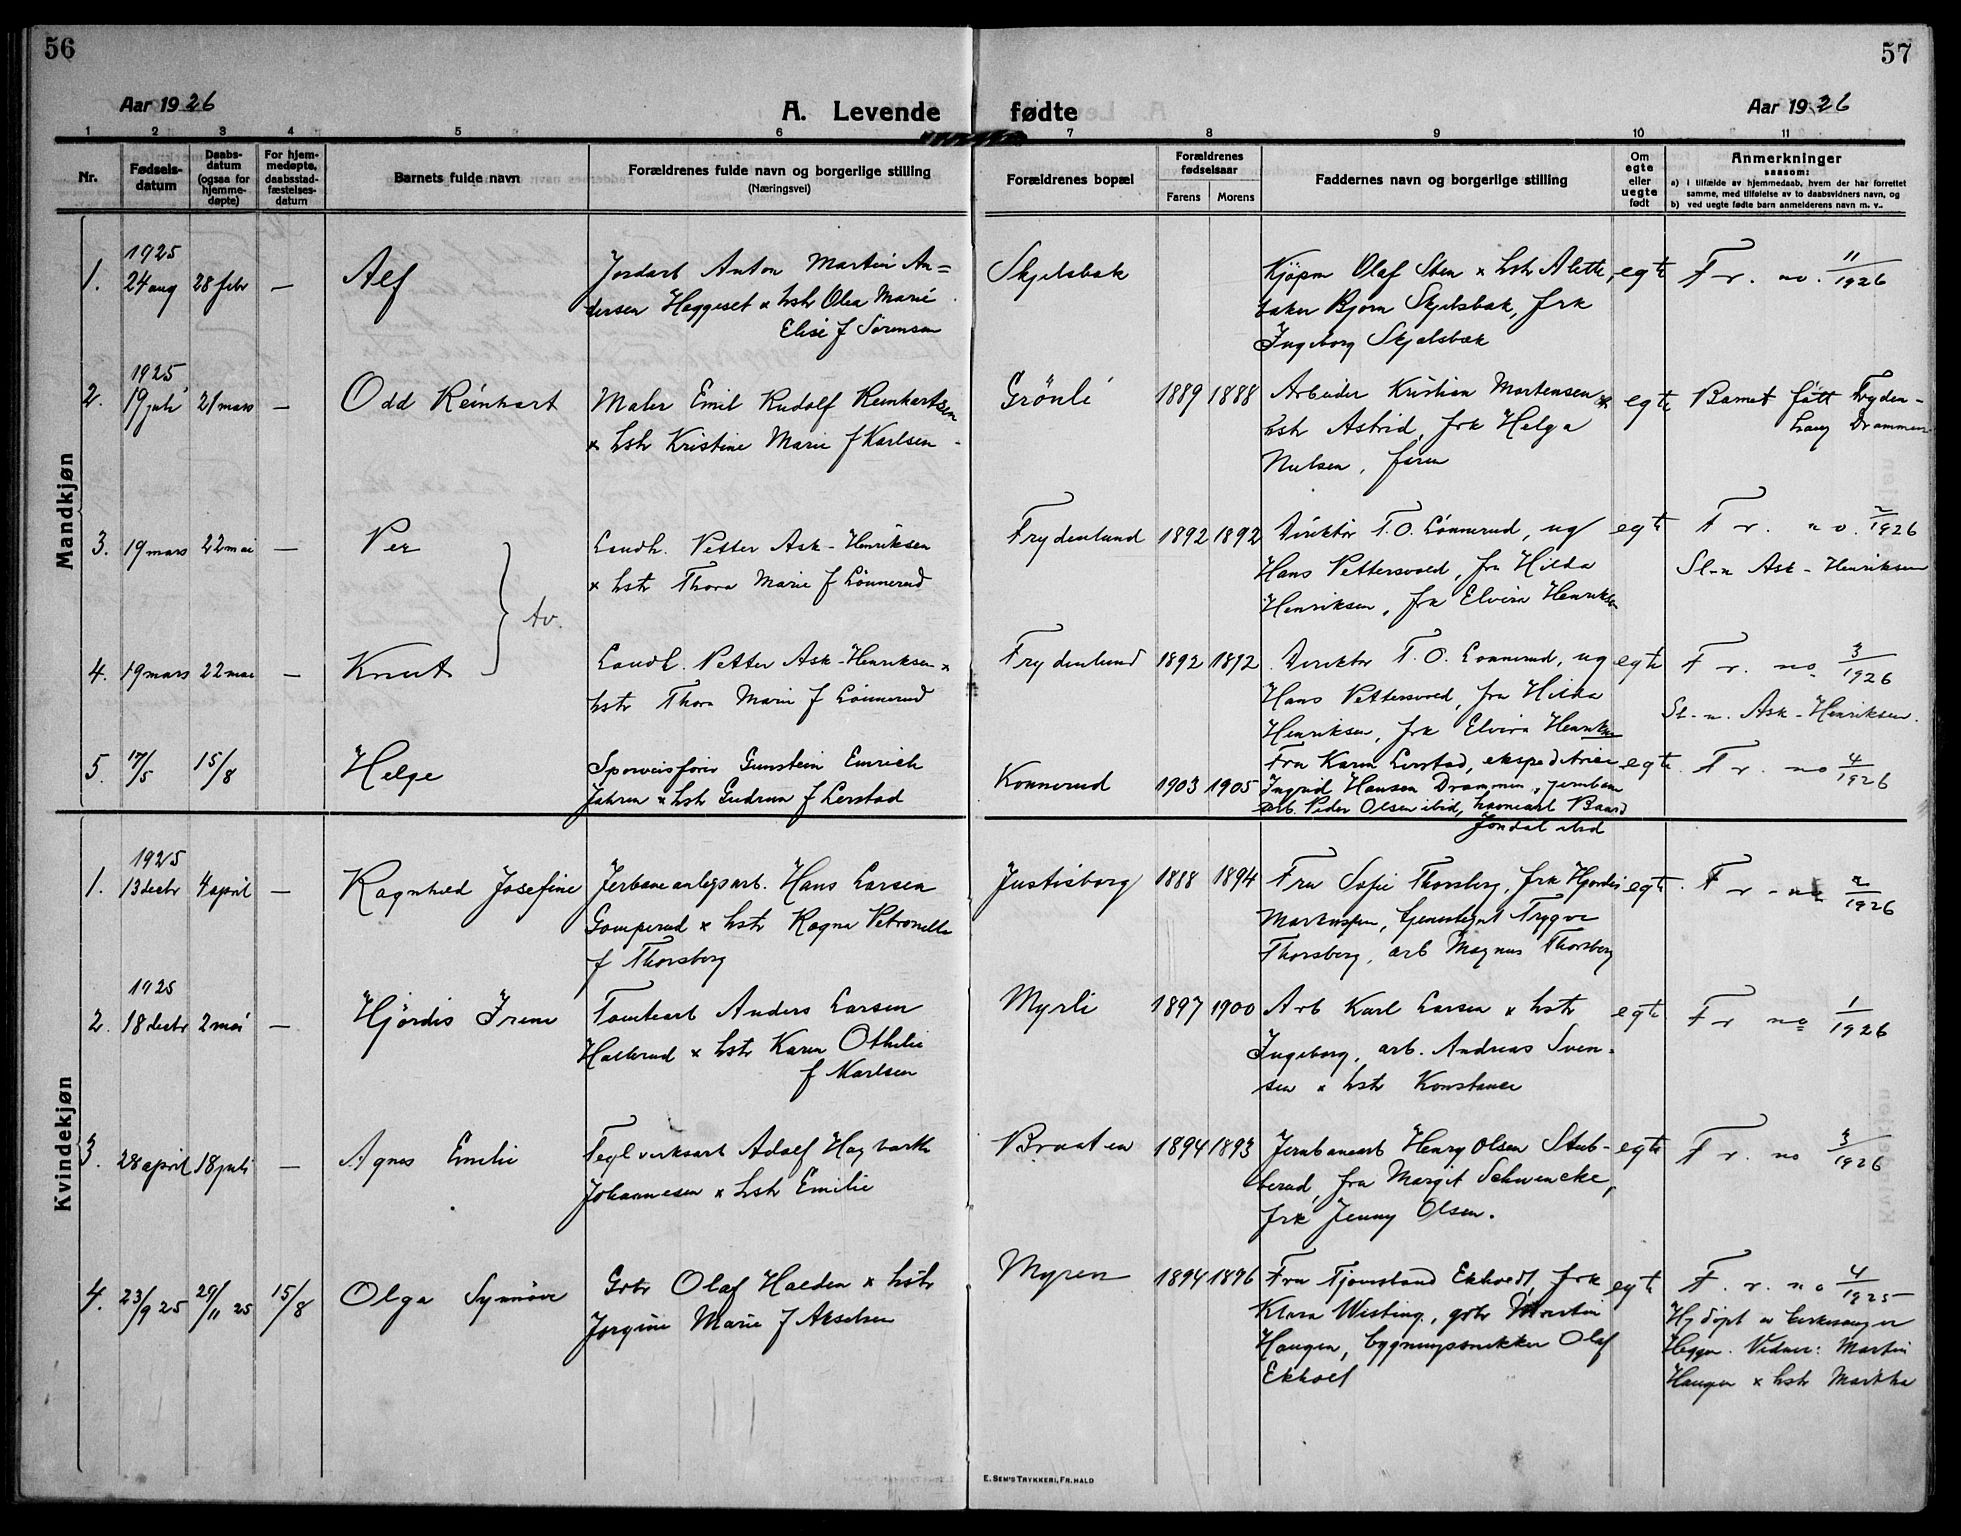 56
57
Aar 1926
A. Levende fødte
Aar 1926
1 2 3 4 5 6 7 8 9 10 11
Nr.
Fødsels-
datum
Daabs-
datum
(ogsaa for
hjemme-
døpte)
For hjem-
medøpte,
daabsstad-
fæstelses-
datum
Barnets fulde navn
Forældrenes fulde navn og borgerlige stilling
(Næringsvei)
Forældrenes bopæl
Forældrenes
fødselsaar
Farens
Morens
Faddernes navn og borgerlige stilling
Om
egte
eller
uegte
født
Anmerkninger
saasom:
a) i tilfælde av hjemmedaab, hvem der har forrettet
samme, med tilføielse av to daabsvidners navn, og
b) ved uegte fødte barn anmelderens navn m. v..
Mandkjøn
1. 1925 24 aug 28 febr — Alf
Jordarb Anton Martin An=
dersen Heggeset x hstr Olea Marie
Elise f Sørensen
Skjelsbæk
Kjøpm Olaf Sten x hstr Alette,
baker Bjørn Skjelsbæk, frk
Ingeborg Skjelsbæk
egte
F. r. no. 11/1926
2. 1925 19 juli 21 mars — Odd Reinhart
Maler Emil Rudolf Reinhartsen
x hstr Kristine Marie f Karlsen
Grönli
1889 1888
Arbeider Kristian Mortensen x
hstr Astrid, frk Helga
Nilsen, faren
egte
Barnet født Fryden-
haug Drammen
3. 19 mars 22 mai — Per
Tv.
Landh. Petter Ask-Henriksen
x hstr Thora Marie f Lönnerud
Frydenlund
1892 1892
Direktör T. O. Lönnerud, ug
Hans Pettersvold, fru Hilda
Henriksen, frk Elvira Henriksen
egte
F r. no. 2/1926
Sl-n Ask-Henriksen
4. 19 mars 22 mai — Knut
Landh. Petter Ask-Henriksen x
hstr Thora Marie f Lönnerud
Frydenlund
1892 1892
Direktör T. O. Lonnerud, ug
Hans Pettersvold, fru Hilda
Henriksen, frk Elvira Henriksen
egte
F r. no 3/1926
Sl-n. Ask-Henriksen.
5. 17/5 15/8 Helge
Gunstein Emrich
Jahren x hstr Gudrun f Lerstad
Konnerud
1903 1905
Fru Karen Lerstad, ekspeditrice
Ingrid Hansen Drammen, jernbane
arb. Peder Olsen ibid, havnearb Baard
Jondal ibid
egte.
F r. no 4/1926
Kvindekjøn
1. 1925 13 decbr 4 april — Ragnhild Josefine
Jerbaneanlegsarb. Hans Larsen
Gomperud x hstr Ragna Petronelle
f Thorsberg
Justisborg
1888 1894
Fru Sofie Thorsberg, frk Hjørdis
Markussen, tjenestegut Trygve
Thorsberg, arb Magnus Thorsberg
egte.
F r - no 2/1926
2. 1925 18 decbr 2 mai — Hjördis Irene
Tomtearb Anders Larsen
x hstr Karen Othilie
f Karlsen
Myrli
1897 1900
Arb Karl Larsen x hstr
Ingeborg, arb. Andreas Sven-
sen x hstr Konstance
egte
F r no 1/1926
3. 28 april 18 juli — Agnes Emilie
Teglverksarb Adolf Hagbarth
Johannesen x hstr Emilie
Braaten
1894 1893
Jernbanearb Henry Olsen Stub-
berud, fru Margit Schwencke,
frk Jenny Olsen.
egte
F r. no 3/1926
4. 23/9 25 29/11 25 15/8 Olga Synnöve
Gbr Olaf Halden x hstr
Jörgine Marie f Akselsen
Myren
1894 1896
Fru Ekholdt, frk
Klara Wisting, gbr Martin
Haugen, bygningssnekker Olaf
Ekholt
egte
F. r. no 4/1925
Hjdöpt av kirkesanger
Heggen. Vidner: Martin
Haugen x hstr Martha
E. SEM'S TRYKKERI, FR.HALD